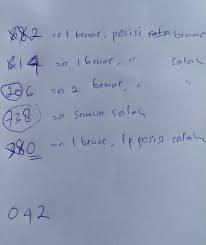 682 = 1 benar, posisi benar
614 = 1 benar, " salah
206 = 2 benar, " "
738 = semua salah
780 = 1 benar, tp posisi salah
042